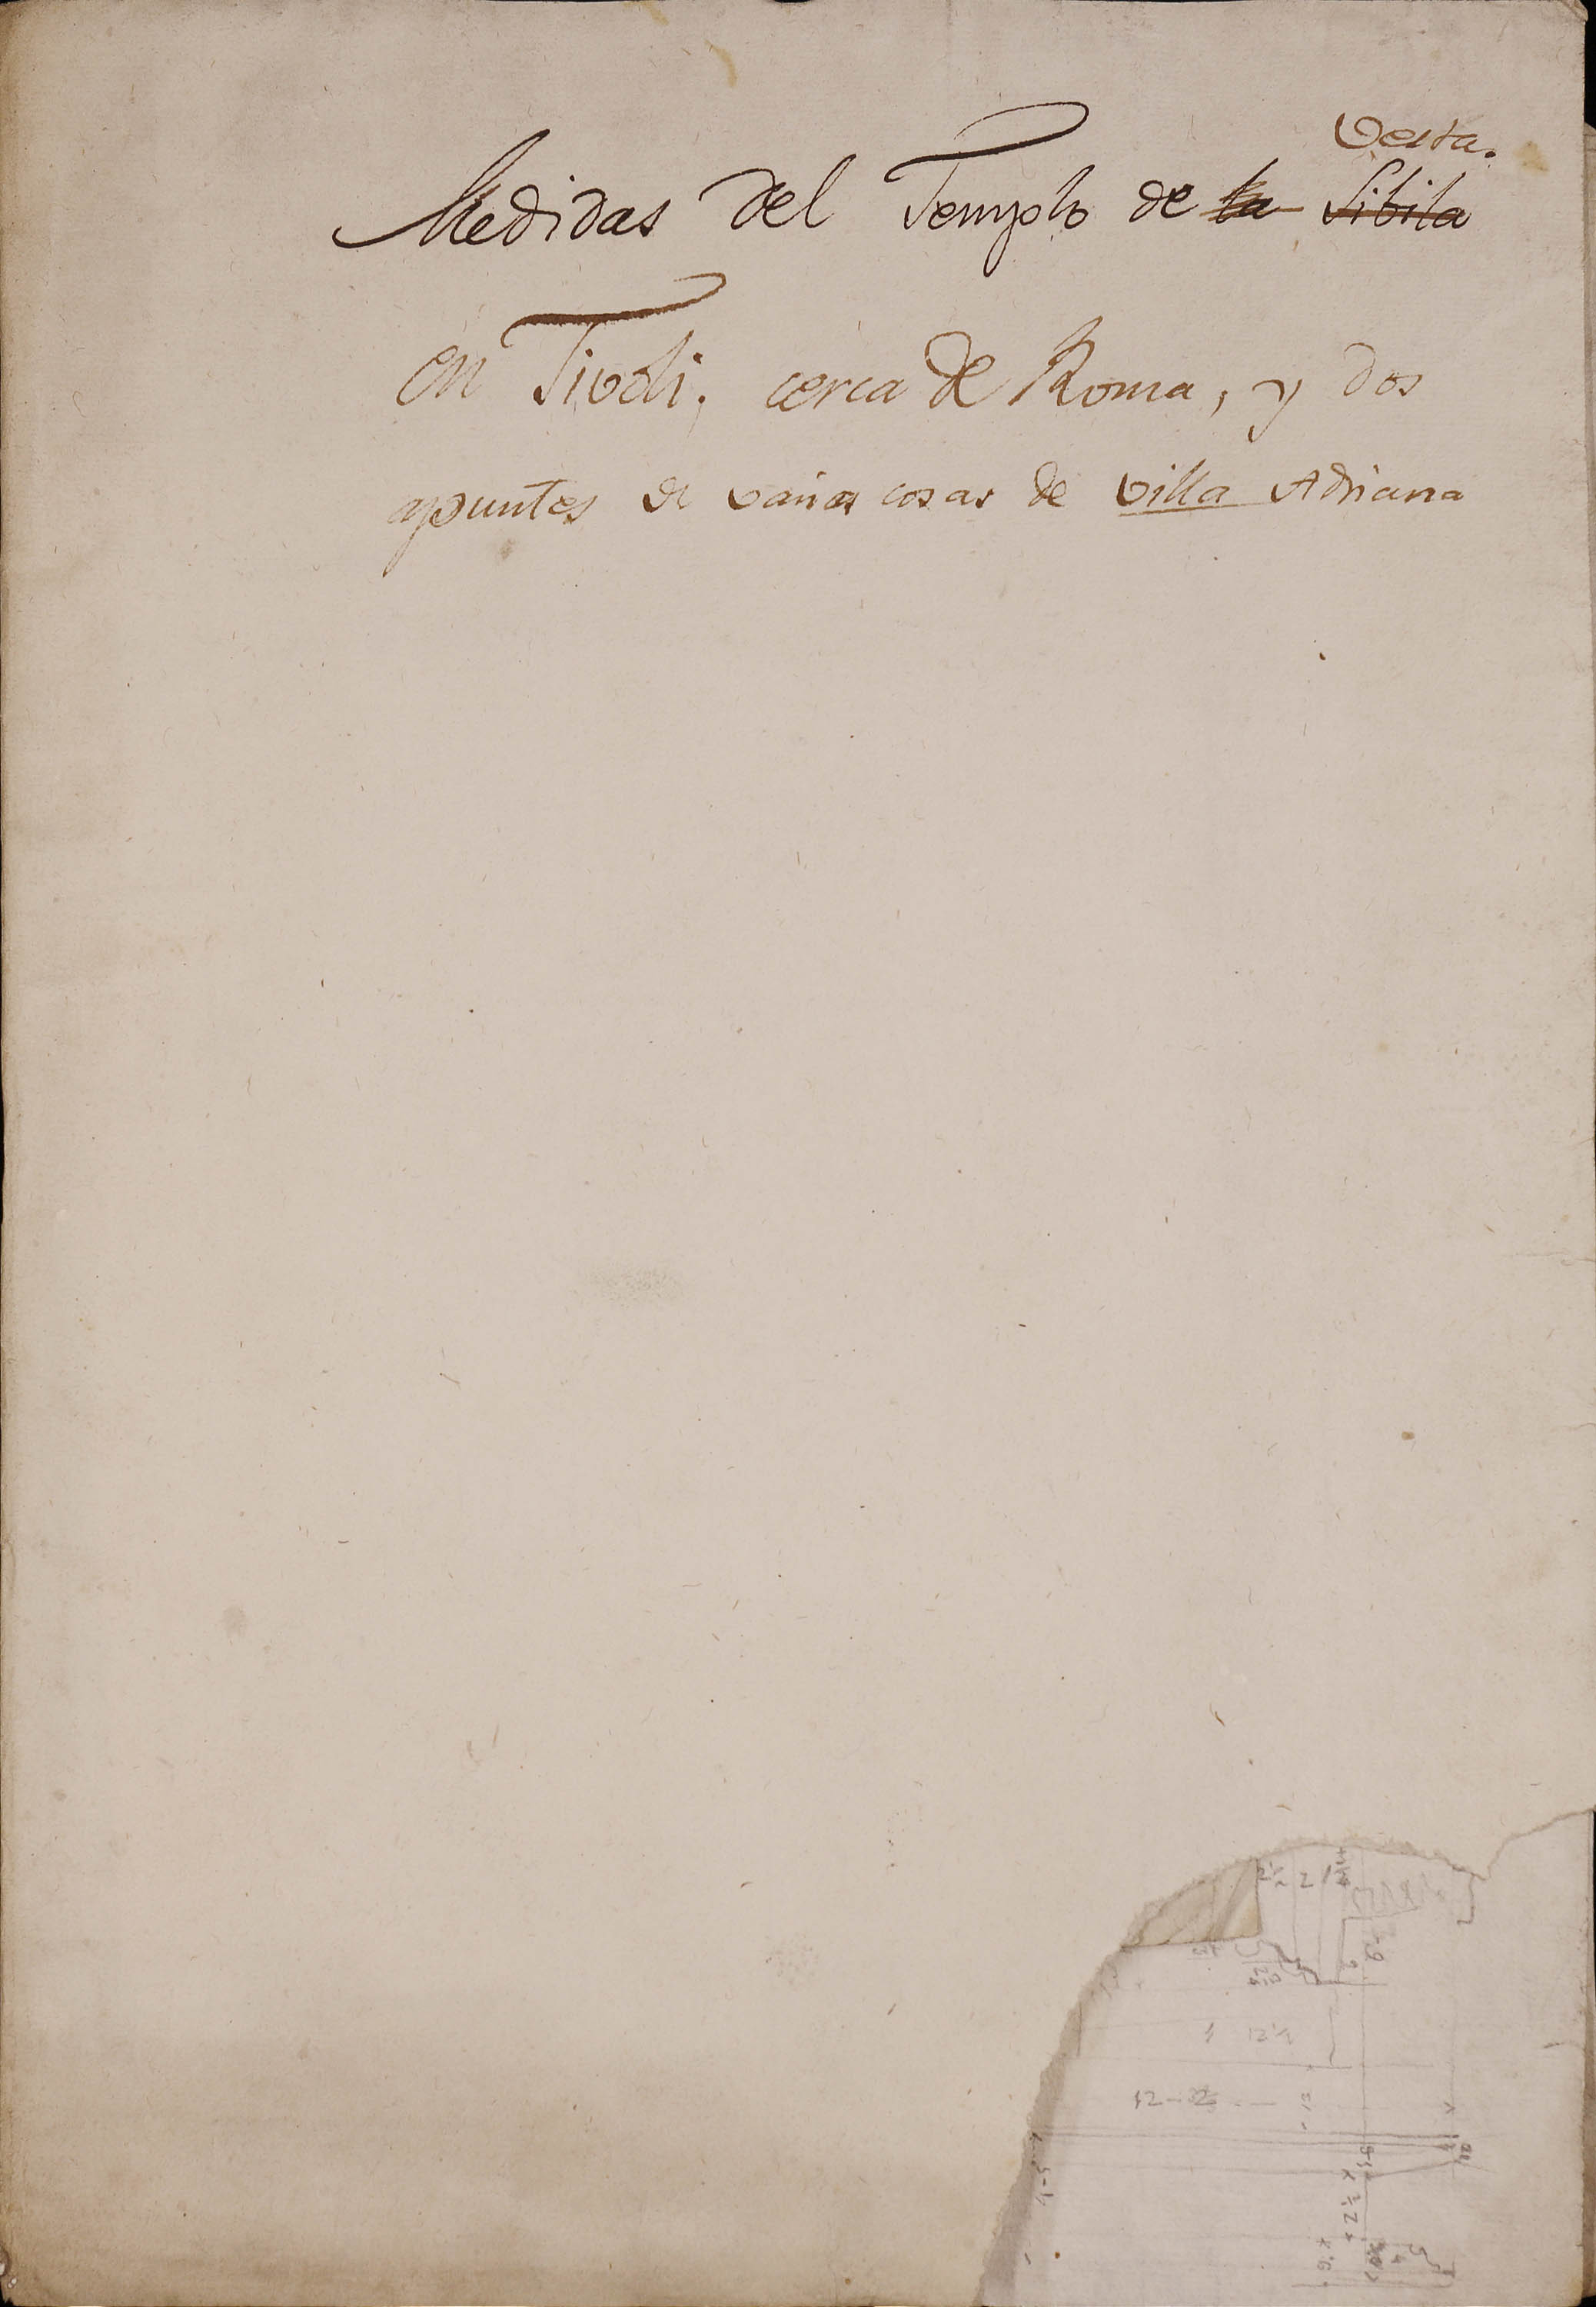 Vesta.
Medidas del Templo de la Sibila
en Tivoli, cerca de Roma, y dos
apuntes de varias cosas de Villa Adriana
2½ 2
12¼
12-32